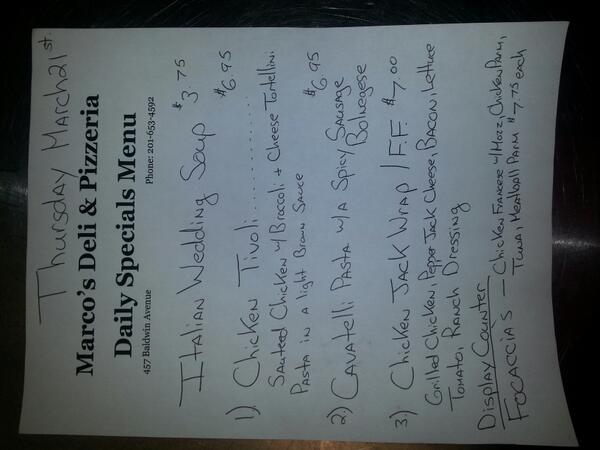 Thursday March 21st.
Marco's Deli & Pizzeria
Daily Specials Menu
457 Baldwin Avenue Phone: 201-653-4592
Italian Wedding Soup $3.75
1) Chicken Tivoli ............. $6.95
Sautéed Chicken w/ Broccoli + Cheese Tortellini
Pasta in a light Brown Sauce
2) Cavatelli Pasta w/a Spicy Sausage $6.95
Bolnegese
3) Chicken Jack Wrap / F.F. $7.00
Grilled Chicken, Pepper Jack Cheese, Bacon, Lettuce
Tomato, Ranch Dressing
Display Counter
Focaccias — Chicken Francese w/ Mozz, Chicken Parm,
Tuna, Meatball Parm $7.75 each